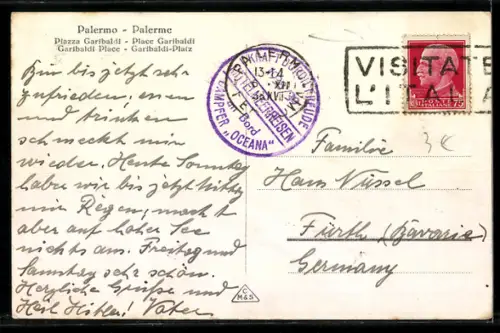 Palermo - Palerme
Piazza Garibaldi - Place Garibaldi
Garibaldi Place - Garibaldi-Platz
Bin bis jetzt sehr
zufrieden, essen
und trinken
schmeckt mir
wieder. Heute Sonntag
haben wir bis jetzt Mittag
nur Regen, macht
aber auf hoher See
nichts aus. Freitag und
Samstag sehr schön.
Herzliche Grüße und
Heil Hitler! Vater
KRAFT DURCH FREUDE
13-14
XII
XVII
REISEN
an Bord
DAMPFER „OCEANA"
VISITATE
L'ITALIA
75
3€
Familie
Hans Nüssel
Fürth (Bavaria)
Germany
C
M & S